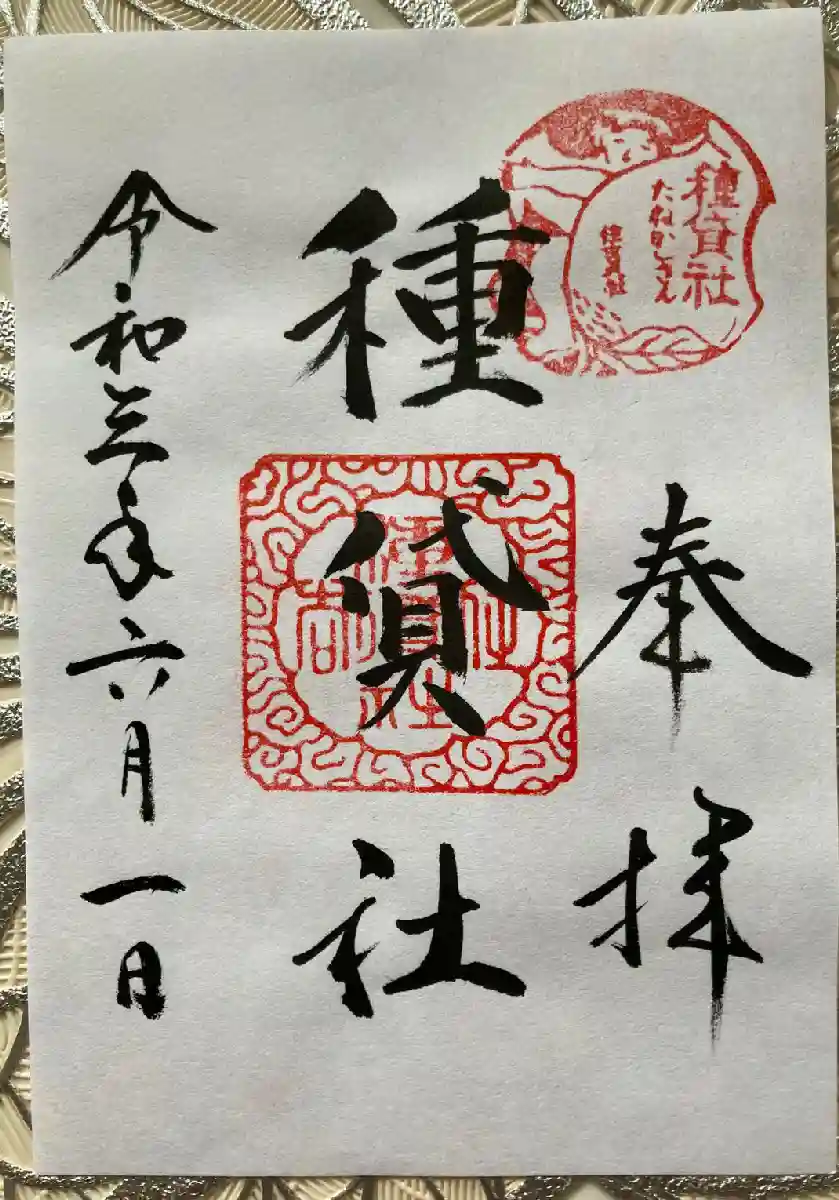 種貸社
たねかしさん
住吉大社
奉拝
種貸社
令和三年六月一日